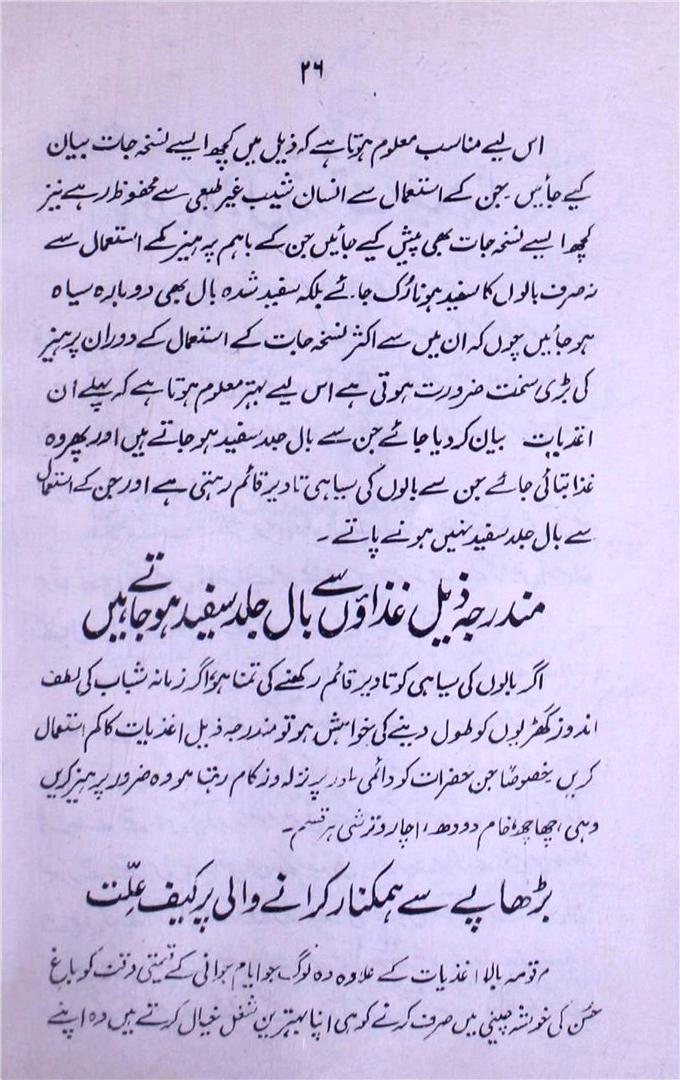 ۲۶
اس لیے مناسب معلوم ہوتا ہے کہ ذیل میں کچھ ایسے نسخہ جات بیان
کیے جائیں۔ جن کے استعمال سے انسان شیب غیر طبعی سے محفوظ رہے نیز
کچھ ایسے نسخہ جات بھی پیش کیے جائیں جن کے باہم پرہیز کے استعمال سے
نہ صرف بالوں کا سفید ہونا رُک جائے بلکہ سفید شدہ بال بھی دوبارہ سیاہ
ہو جائیں چوں کہ ان میں سے اکثر نسخہ جات کے استعمال کے دوران پرہیز
کی بڑی سخت ضرورت ہوتی ہے اس لیے بہتر معلوم ہوتا ہے کہ پہلے ان
اغذیات بیان کر دیا جائے جن سے بال جلد سفید ہو جاتے ہیں اور پھر وہ
غذا بتائی جائے جن سے بالوں کی سیاہی تا دیر قائم رہتی ہے اور جن کے استعمال
سے بال جلد سفید نہیں ہونے پاتے ۔
مندرجہ ذیل غذاؤں سے بال جلد سفید ہو جاتے ہیں
اگر بالوں کی سیاہی کو تا دیر قائم رکھنے کی تمنا ہو اگر زمانہ شباب کی لطف
اندوز گھڑیوں کو طول دینے کی خواہش ہو تو مندرجہ ذیل اغذیات کا کم استعمال
کریں خصوصاً جن حضرات کو دائمی طور پر نزلہ و زکام رہتا ہو وہ ضرور پرہیز کریں
دہی، چھاچھ، خام دودھ، اچار و ترشی ہر قسم۔
بڑھاپے سے ہمکنار کرانے والی پر کیف علّت
مرقومہ بالا اغذیات کے علاوہ وہ لوگ جو ایام جوانی کے قیمتی وقت کو باغ
حسن کی خوشہ چینی میں صرف کرنے کو ہی اپنا بہترین شغل خیال کرتے ہیں وہ اپنے